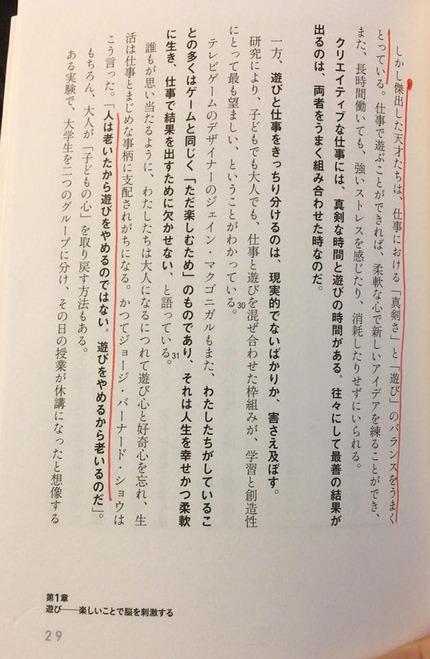 しかし傑出した天才たちは、仕事における「真剣さ」と「遊び」のバランスをうまく
とっている。仕事で遊ぶことができれば、柔軟な心で新しいアイデアを練ることができ、
また、長時間働いても、強いストレスを感じたり、消耗したりせずにいられる。
クリエイティブな仕事には、真剣な時間と遊びの時間がある。往々にして最善の結果が
出るのは、両者をうまく組み合わせた時なのだ。
一方、遊びと仕事をきっちり分けるのは、現実的でないばかりか、害さえ及ぼす。
研究により、子どもでも大人でも、仕事と遊びを混ぜ合わせた枠組みが、学習と創造性
にとって最も望ましい、ということがわかっている。30
テレビゲームのデザイナーのジェイン・マクゴニガルもまた、わたしたちがしているこ
との多くはゲームと同じく「ただ楽しむため」のものであり、それは人生を幸せかつ柔軟
に生き、仕事で結果を出すために欠かせない、と語っている。31
誰もが思い当たるように、わたしたちは大人になるにつれて遊び心と好奇心を忘れ、生
活は仕事とまじめな事柄に支配されがちになる。かつてジョージ・バーナード・ショウは
こう言った。「人は老いたから遊びをやめるのではない。遊びをやめるから老いるのだ」。
もちろん、大人が「子どもの心」を取り戻す方法もある。
ある実験で、大学生を二つのグループに分け、その日の授業が休講になったと想像する
第1章
遊び──楽しいことで脳を刺激する
29